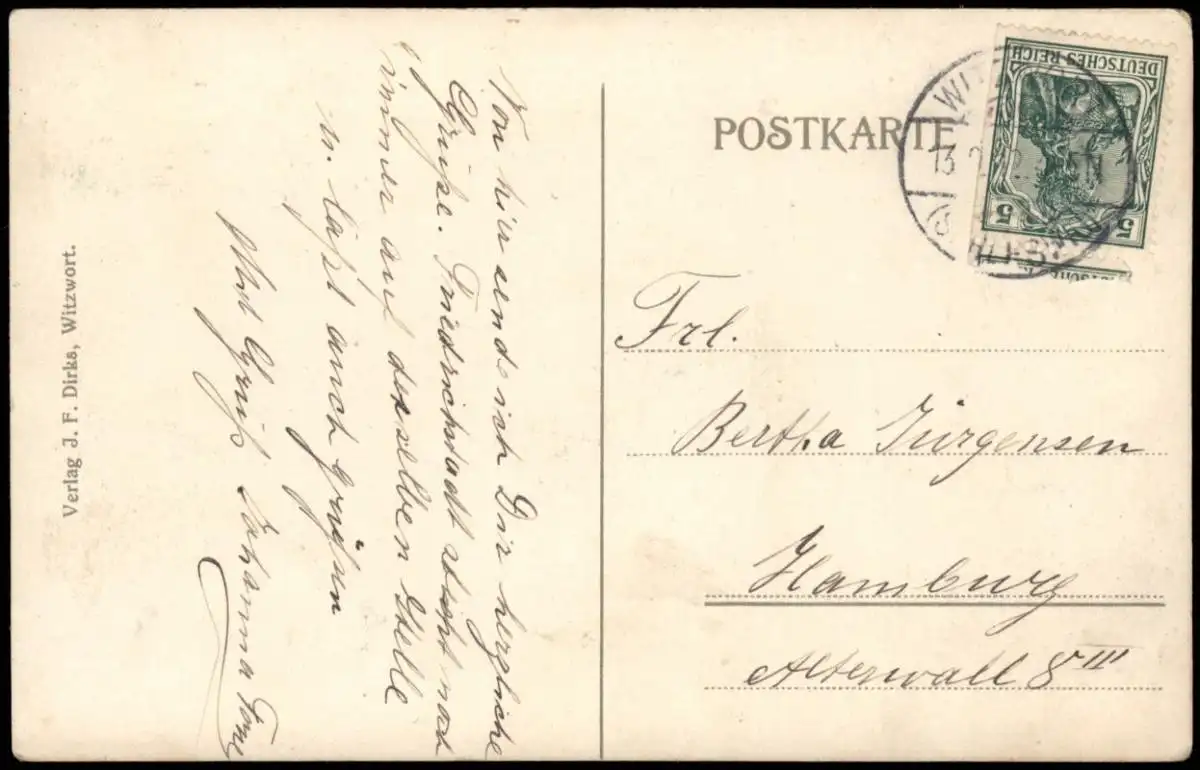 Von hier sende ich Dir herzliche
Grüße. Friedrichstadt steht noch
immer auf derselben Stelle
u. läßt auch grüßen
Gruß Johanna
Verlag J. F. Dirks, Witzwort.
POSTKARTE
DEUTSCHES REICH
5 5
Frl.
Bertha Jürgensen
Hamburg
Alterwall 8 III